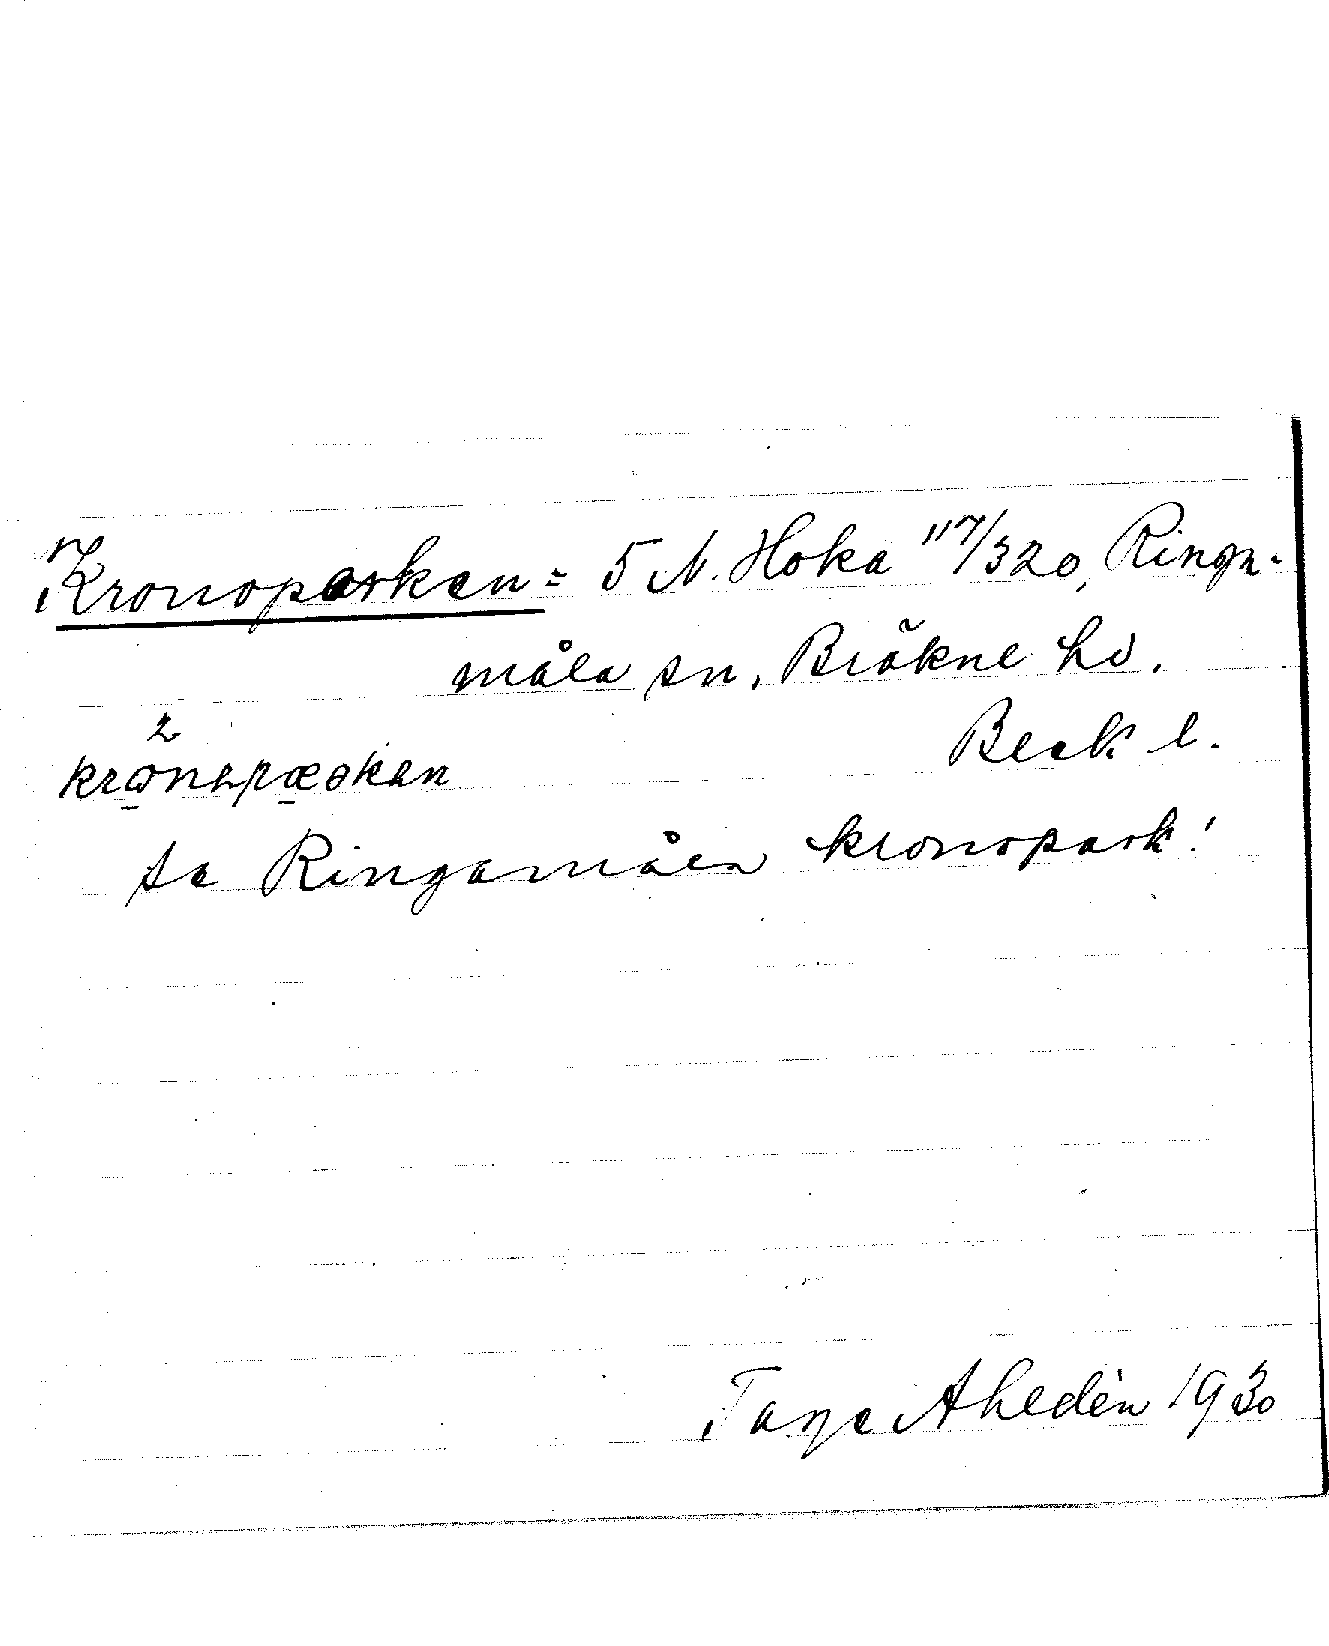 Kronoparken = 5 N. Hoka 117/320, Ringa-
måla sn, Bräkne hd.
2
Beck l.
se Ringamåla kronopark!
Tage Ahldén 1930